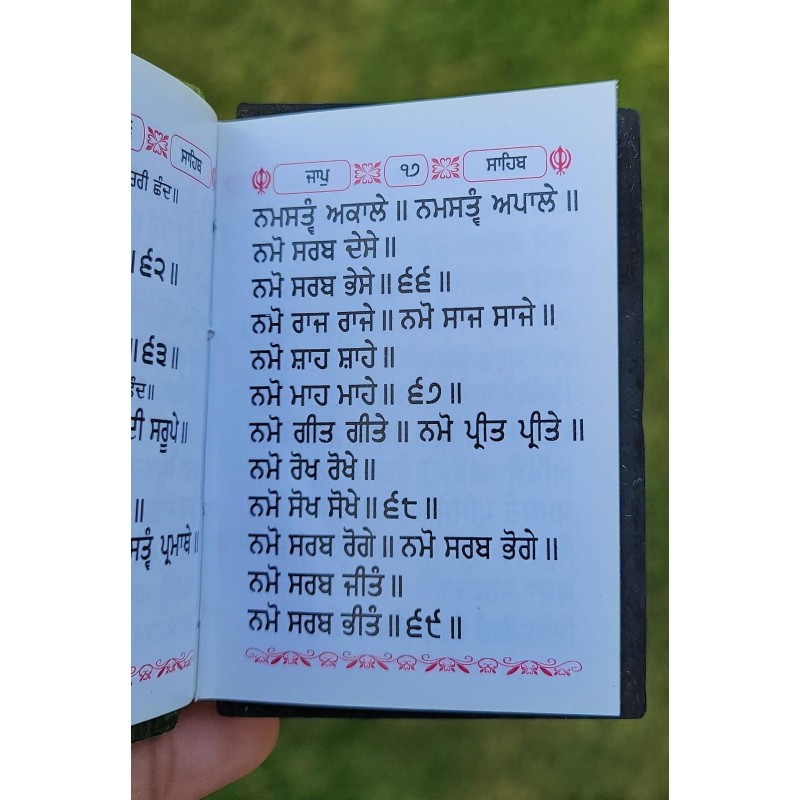 ਸਾਹਿਬ
ਰੀ ਛੰਦ॥
।੬੨॥
।੬੩॥
ਛੰਦ॥
ਦੀ ਸਰੂਪੇ॥
॥
ਸਤ੍ਵੰ ਪ੍ਰਮਾਥੇ॥
ਜਾਪੁ ੧੭ ਸਾਹਿਬ
ਨਮਸਤ੍ਵੰ ਅਕਾਲੇ॥ ਨਮਸਤ੍ਵੰ ਅਪਾਲੇ॥
ਨਮੋ ਸਰਬ ਦੇਸੇ॥
ਨਮੋ ਸਰਬ ਭੇਸੇ॥੬੬॥
ਨਮੋ ਰਾਜ ਰਾਜੇ॥ ਨਮੋ ਸਾਜ ਸਾਜੇ॥
ਨਮੋ ਸ਼ਾਹ ਸ਼ਾਹੇ॥
ਨਮੋ ਮਾਹ ਮਾਹੇ॥ ੬੭॥
ਨਮੋ ਗੀਤ ਗੀਤੇ॥ ਨਮੋ ਪ੍ਰੀਤ ਪ੍ਰੀਤੇ॥
ਨਮੋ ਰੋਖ ਰੋਖੇ॥
ਨਮੋ ਸੋਖ ਸੋਖੇ॥੬੮॥
ਨਮੋ ਸਰਬ ਰੋਗੇ॥ ਨਮੋ ਸਰਬ ਭੋਗੇ॥
ਨਮੋ ਸਰਬ ਜੀਤੰ॥
ਨਮੋ ਸਰਬ ਭੀਤੰ॥੬੯॥